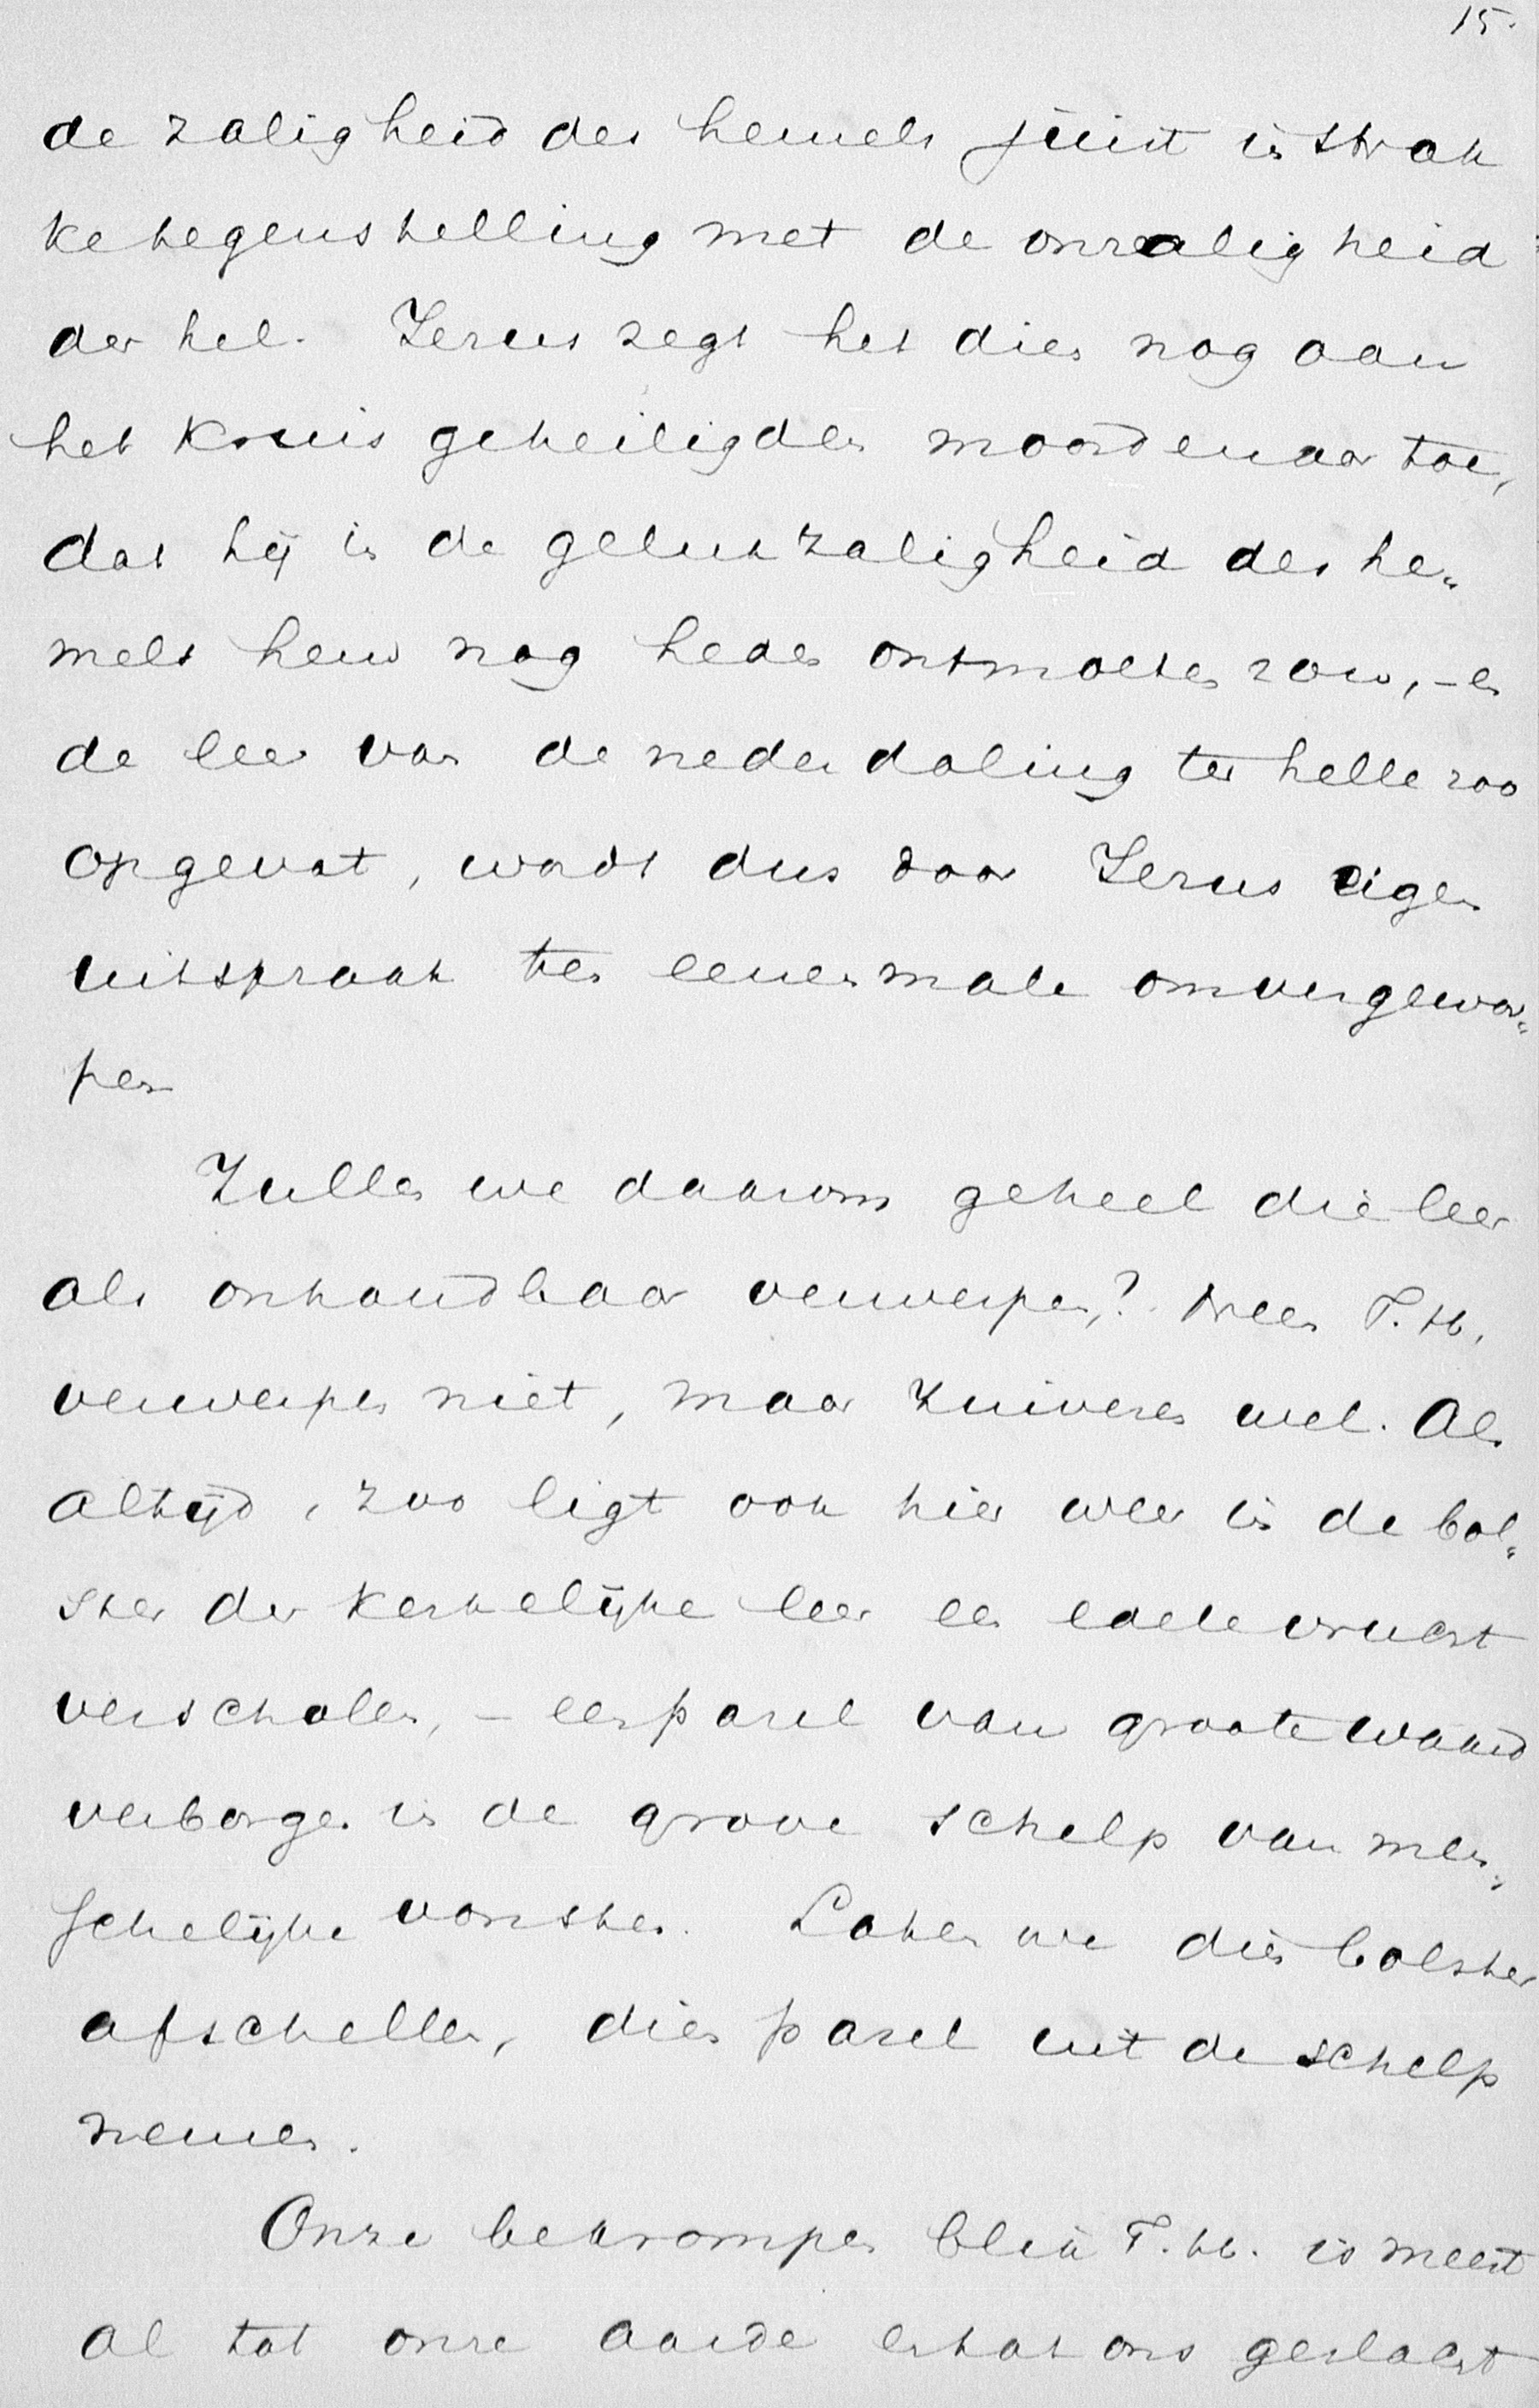 15.
de zaligheid des hemels juist in strak
ke tegenstelling met de onzaligheid
der hel. Jezus zegt het dien nog aan
het kruis geheiligden moordenaar toe,
dat hij in de gelukzaligheid des he„
mels hem nog heden ontmoeten zou, – en
de leer van de nederdaling ter helle zoo
opgevat, wordt dus door Jezus eigen
uitspraak ten eenenmale omvergewor„
pen
Zullen we daarom geheel die leer
als onhoudbaar verwerpen? Neen T.H.
verwerpen niet, maar zuiveren wel. Als
altijd, zoo ligt ook hier weer in de bol„
ster der kerkelijke leer een edele vrucht
verscholen, – een parel van groote waard
verborgen in de grove schelp van men„
schelijke vonsten. Laten we dien bolster
afschellen, dien parel uit de schelp
nemen.
Onze bekrompen blik T.H. is meest
al tot onze aarde en tot ons geslacht